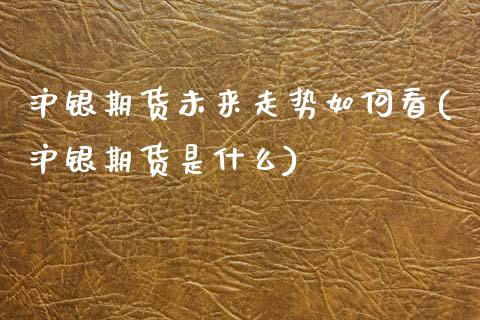 沪银期货未来走势如何看(
沪银期货是什么)